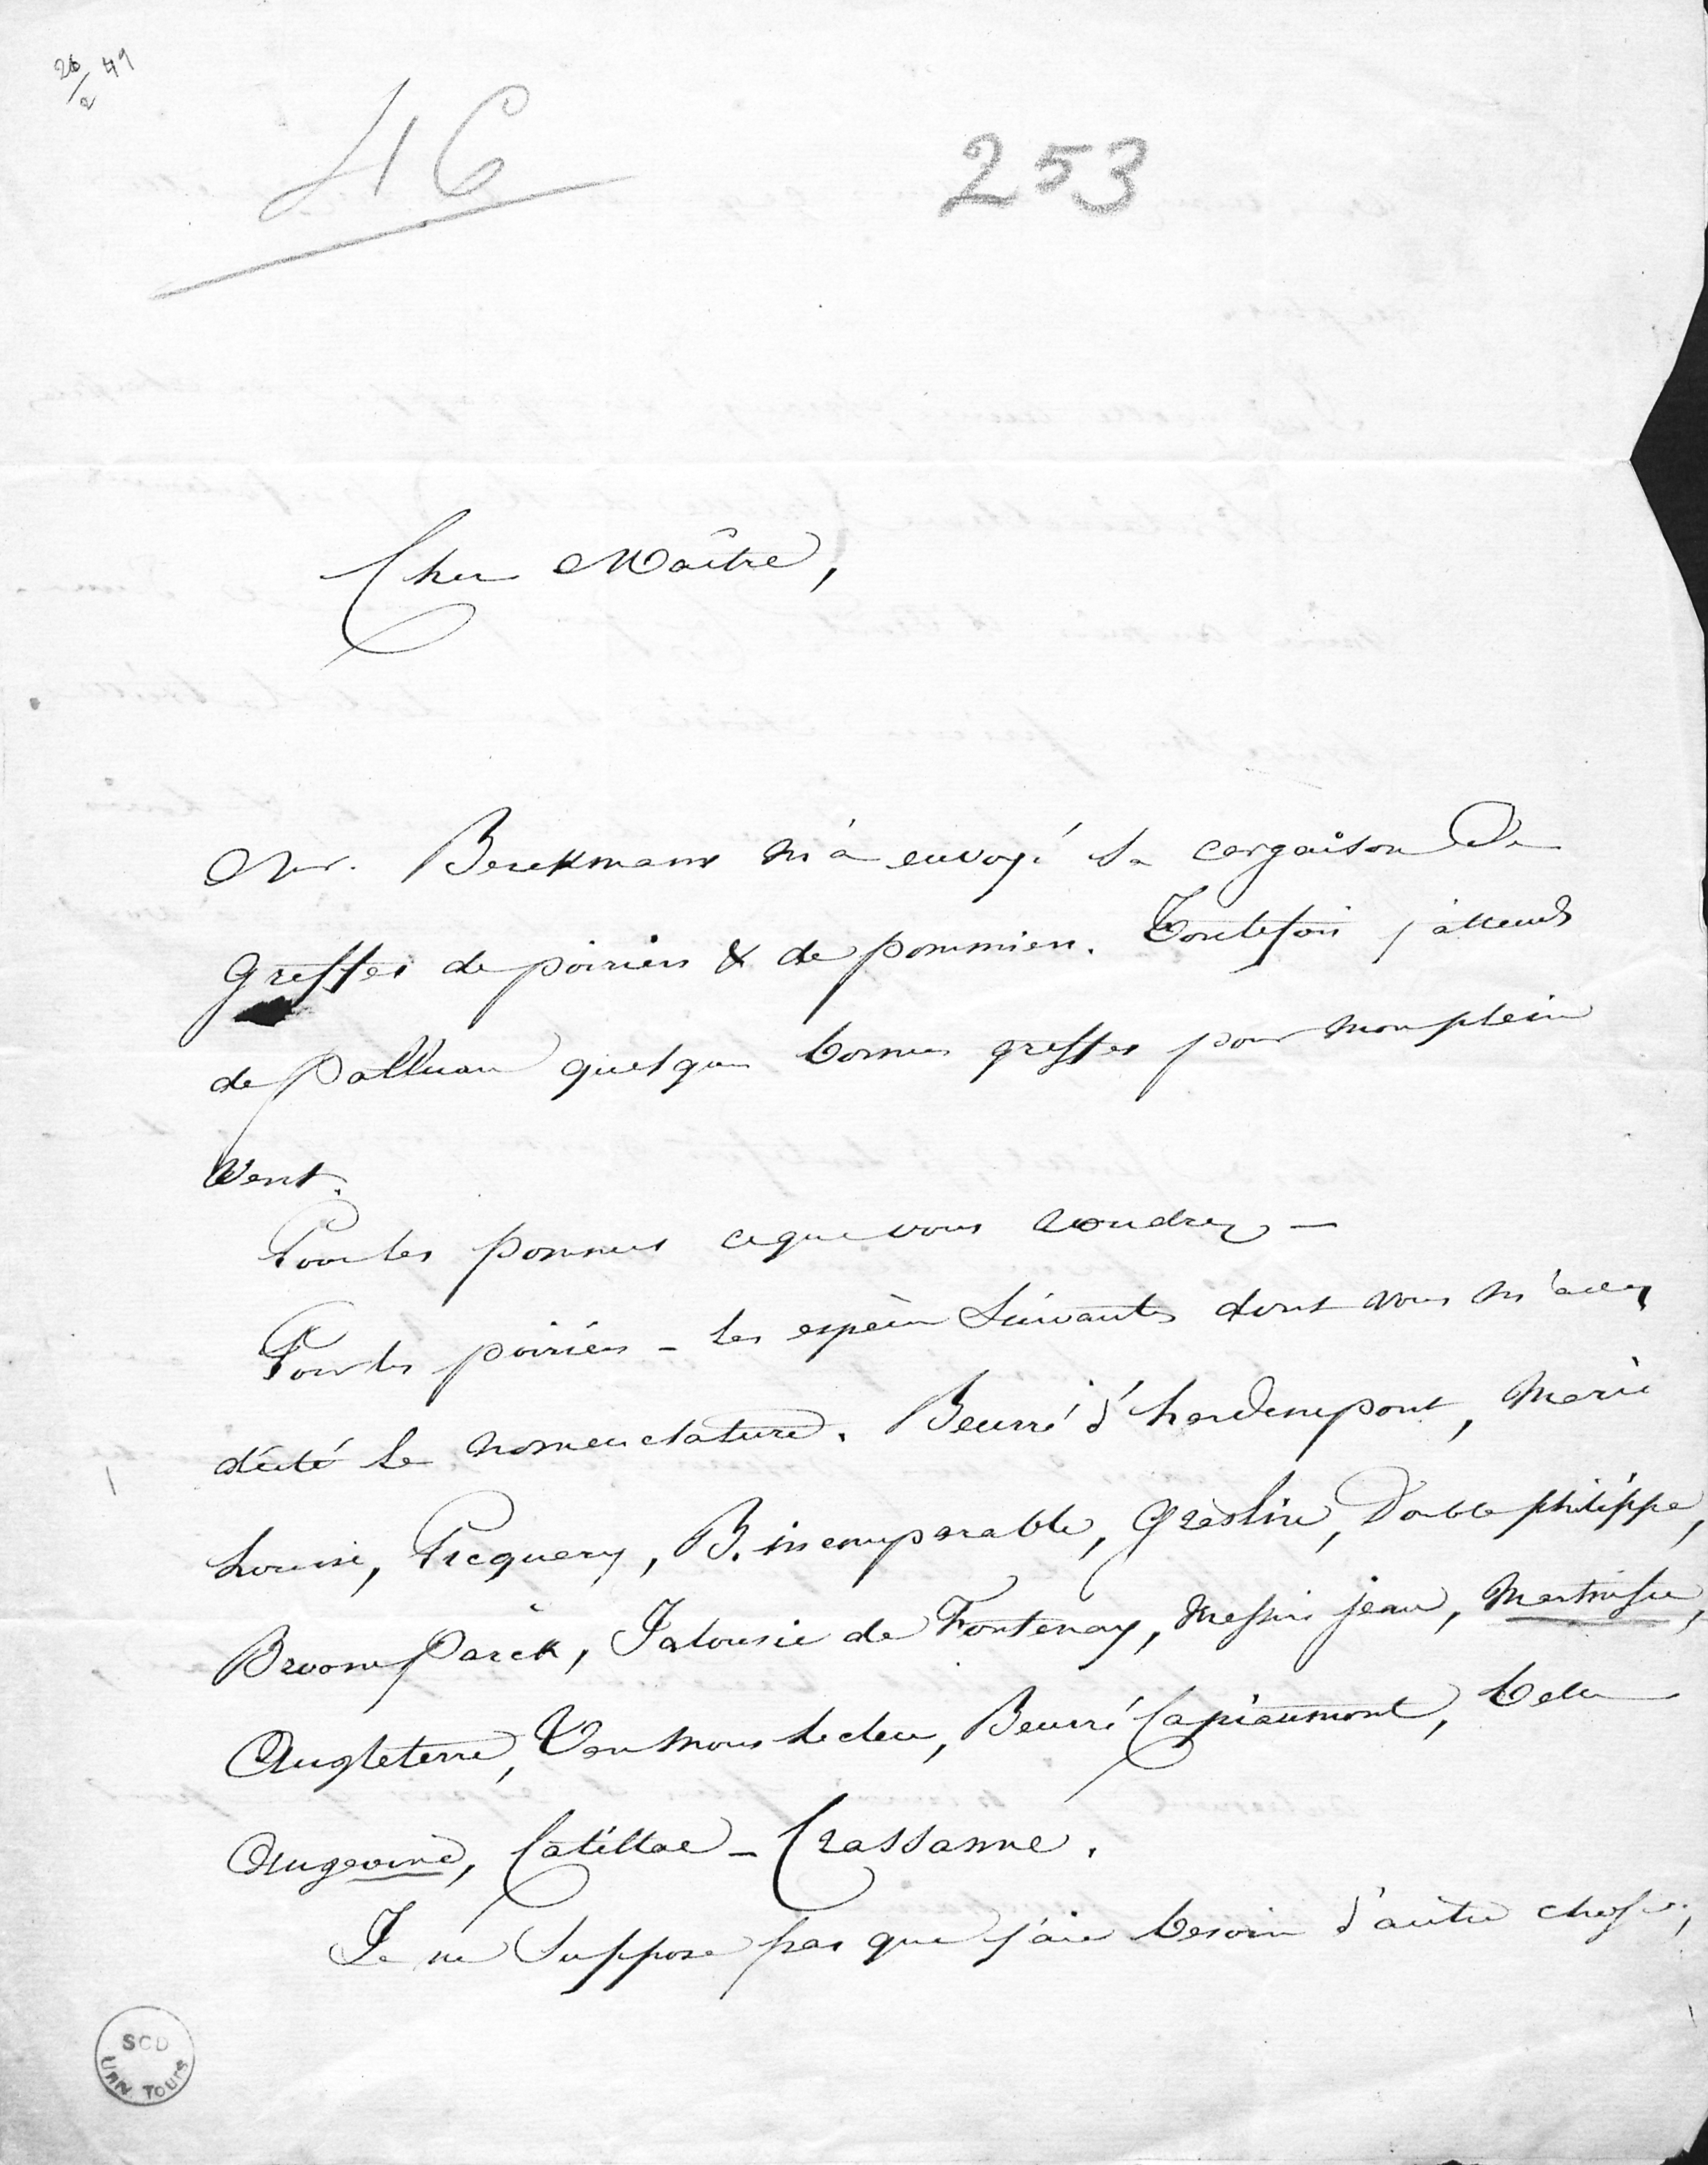 26/2 49
46
253
Cher Maître,
Mr. Berckmans m'a envoyé sa cargaison de
greffes de poiriers & de pommiers. Toutefois j'attends
de Palluau quelques bonnes greffes pour mon plein
Vent.
Pour les pommes ce que vous voudrez —
Pour les poiriers - les espèces suivantes dont vous m'avez
dicté la nomenclature. Beurré d'hardempont, Marie
Louise, Picquery, B. incomparable, Grasline, Double philippe,
Broom Parck, Jalousie de Fontenay, Messire jean, Martin sec,
Angleterre, Van Mons Leclerc, Beurré Capiaumont, belle
Angevine, Catillac - Crassanne.
Je ne suppose pas que j'aie besoin d'autre chose,
SCD
UNIV TOURS